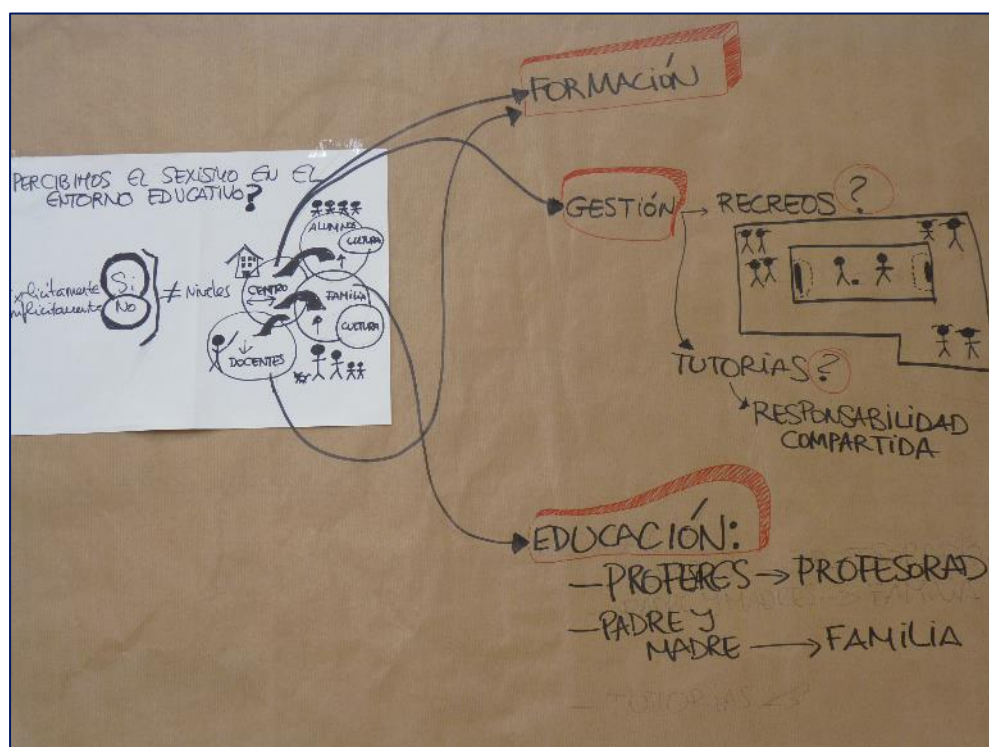 PERCIBIMOS EL SEXISMO EN EL
ENTORNO EDUCATIVO?
Si
NO
≠ Niveles
ALUMNOS
CULTURA
CENTRO
FAMILIA
CULTURA
DOCENTES
FORMACIÓN
GESTIÓN → RECREOS?
TUTORIAS?
RESPONSABILIDAD
COMPARTIDA
EDUCACIÓN:
- PROFERES → PROFESORAD
- PADRE Y
MADRE → FAMILIA
- TUTORIAS